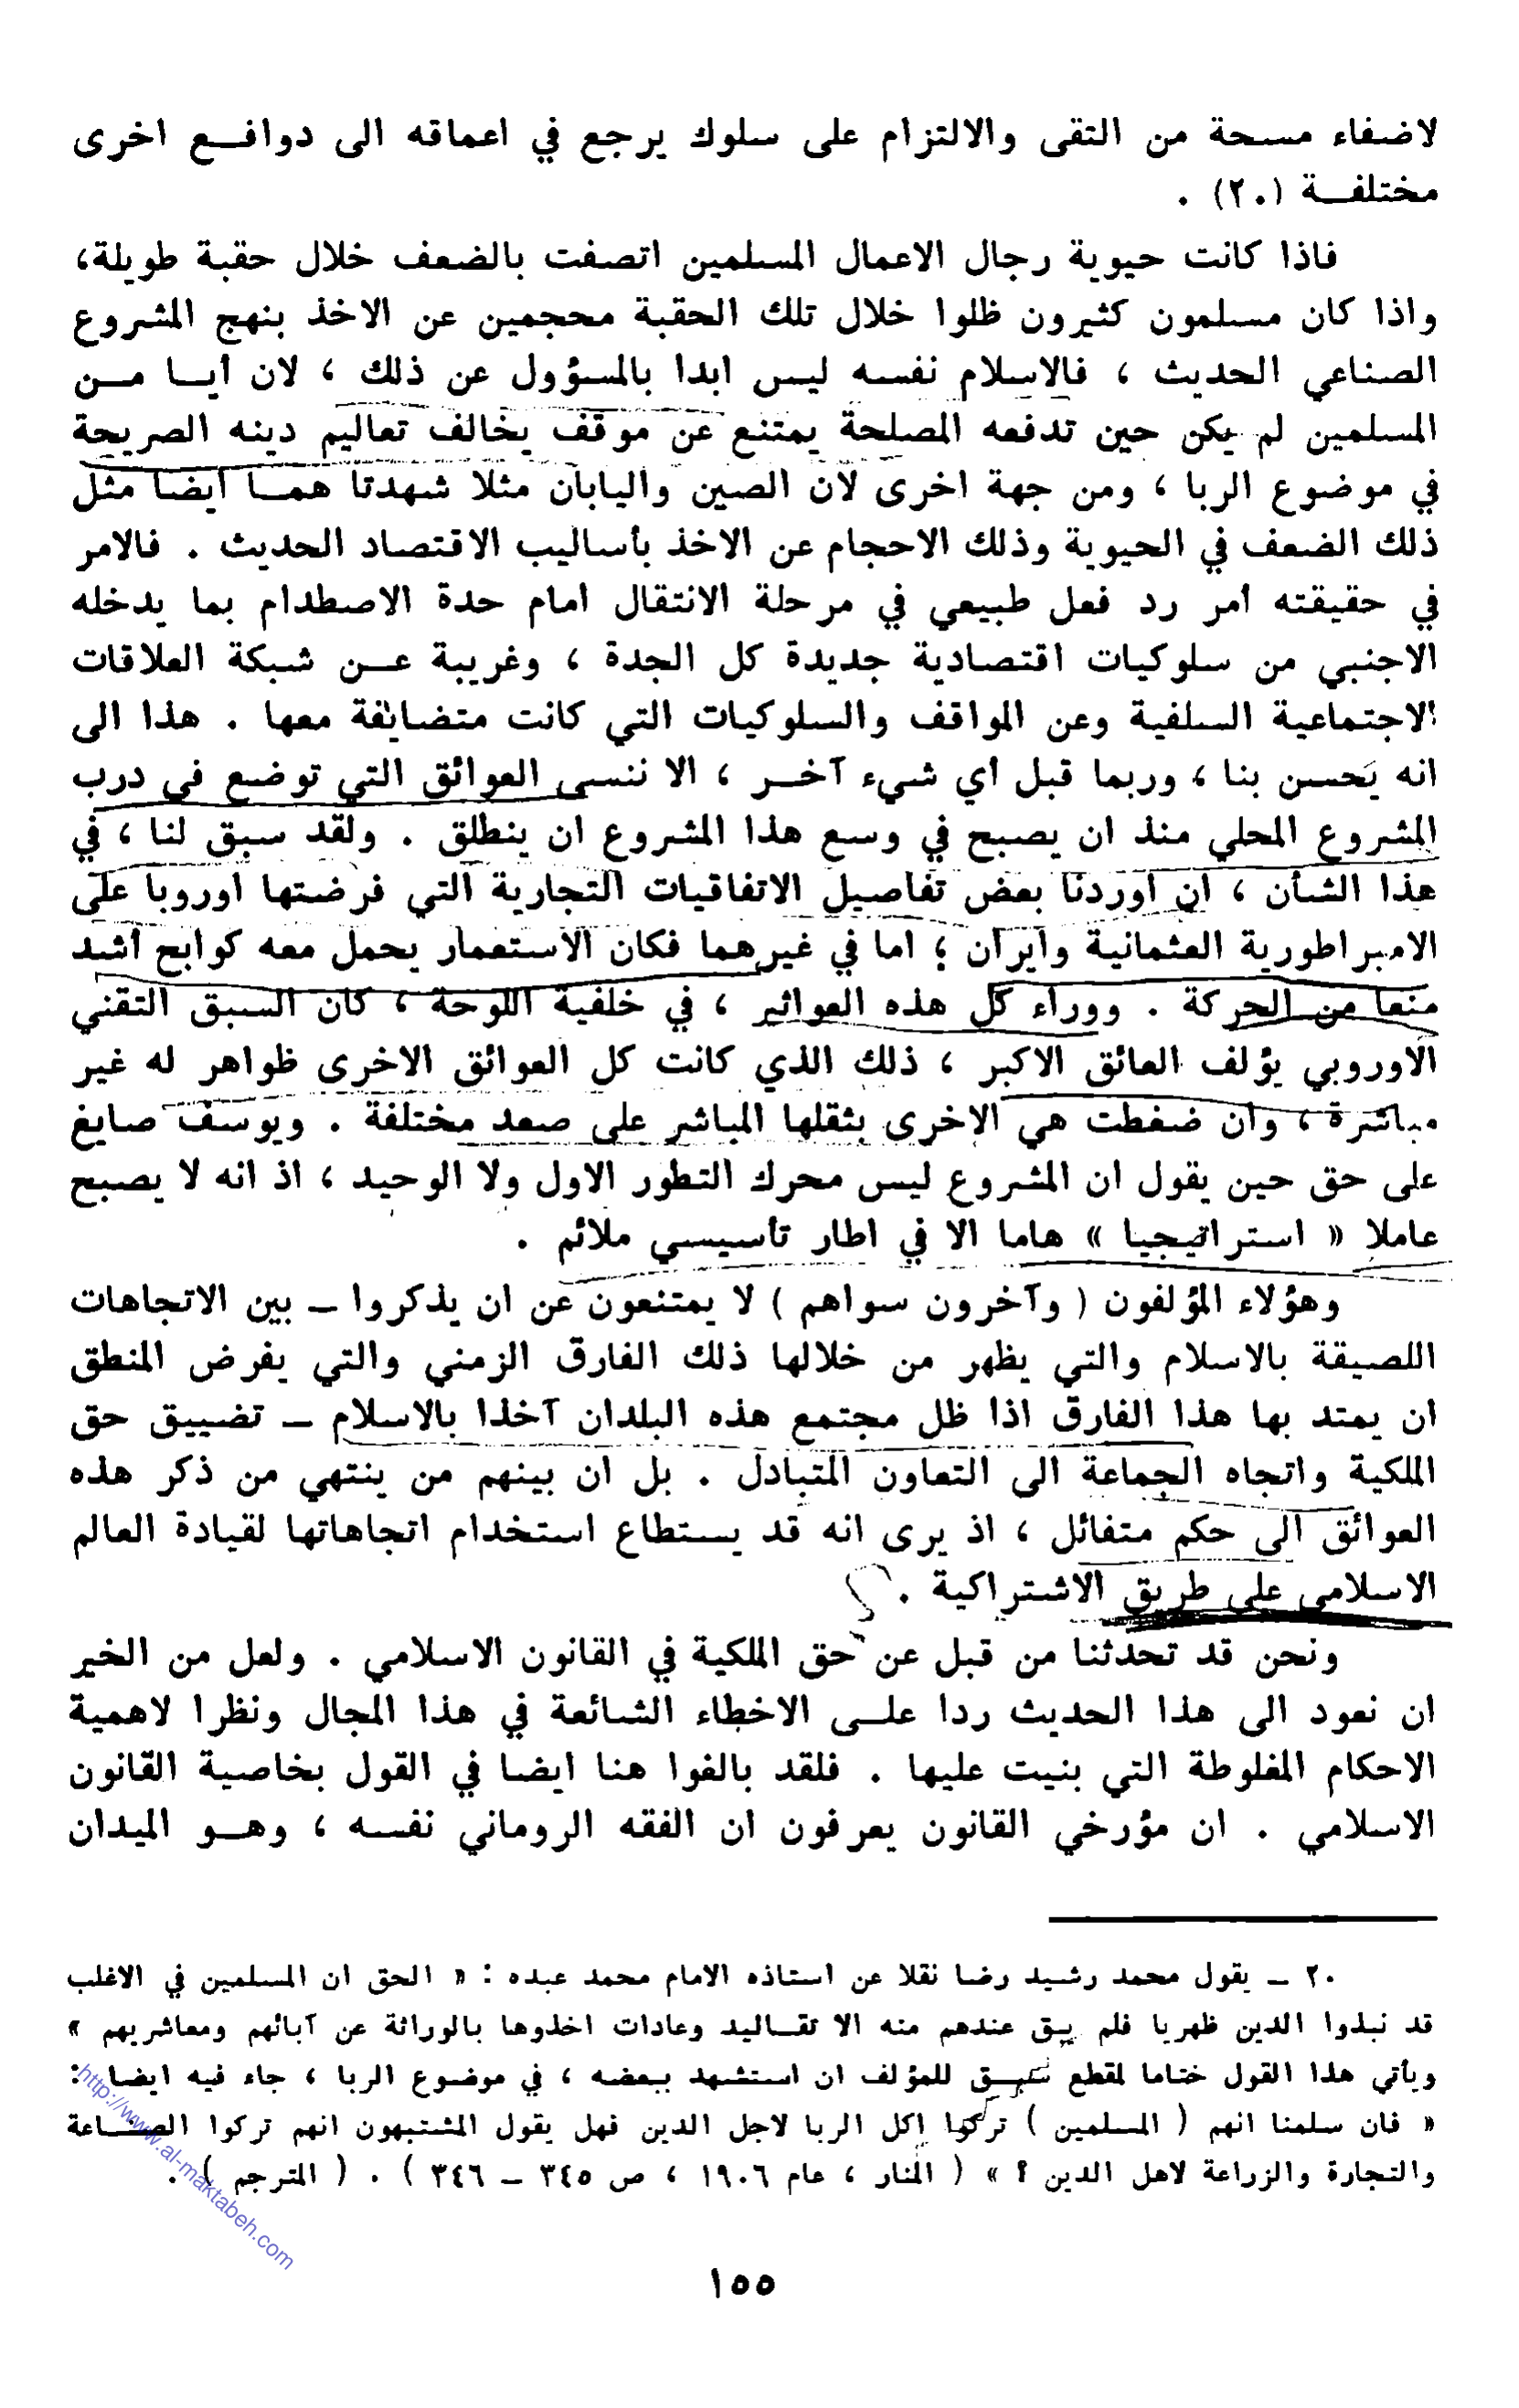 لاضفاء مسحة من التقى والالتزام على سلوك يرجع في اعماقه الى دوافـــع اخرى
مختلفـــة (٢٠) .
فاذا كانت حيوية رجال الاعمال المسلمين اتصفت بالضعف خلال حقبة طويلة،
واذا كان مسلمون كثيرون ظلوا خلال تلك الحقبة محجمين عن الاخذ بنهج المشروع
الصناعي الحديث ، فالاسلام نفسه ليس ابدا بالمسؤول عن ذلك ، لان أيـــا مـــن
المسلمين لم يكن حين تدفعه المصلحة يمتنع عن موقف يخالف تعاليم دينه الصريحة
في موضوع الربا ، ومن جهة اخرى لان الصين واليابان مثلا شهدتا همـــا ايضا مثل
ذلك الضعف في الحيوية وذلك الاحجام عن الاخذ بأساليب الاقتصاد الحديث . فالامر
في حقيقته أمر رد فعل طبيعي في مرحلة الانتقال امام حدة الاصطدام بما يدخله
الاجنبي من سلوكيات اقتصادية جديدة كل الجدة ، وغريبة عـــن شبكة العلاقات
الاجتماعية السلفية وعن المواقف والسلوكيات التي كانت متضايفة معها . هذا الى
انه يحسن بنا ، وربما قبل أي شيء آخـــر ، الا ننسى العوائق التي توضع في درب
المشروع المحلي منذ ان يصبح في وسع هذا المشروع ان ينطلق . ولقد سبق لنا ، في
هذا الشأن ، ان أوردنا بعض تفاصيل الاتفاقيات التجارية التي فرضتها اوروبا على
الامبراطورية العثمانية وايران ؛ اما في غيرهما فكان الاستعمار يحمل معه كوابح أشد
منعا من الحركة . ووراء كل هذه العواثير ، في خلفية اللوحة ، كان السبق التقني
الاوروبي يؤلف العائق الاكبر ، ذلك الذي كانت كل العوائق الاخرى ظواهر له غير
مباشرة ، وان ضغطت هي الاخرى بثقلها المباشر على صعد مختلفة . ويوسف صايغ
على حق حين يقول ان المشروع ليس محرك التطور الاول ولا الوحيد ، اذ انه لا يصبح
عاملا « استراتيجيا » هاما الا في اطار تأسيسي ملائم .
وهؤلاء المؤلفون ( وآخرون سواهم ) لا يمتنعون عن ان يذكروا ــ بين الاتجاهات
اللصيقة بالاسلام والتي يظهر من خلالها ذلك الفارق الزمني والتي يفرض المنطق
ان يمتد بها هذا الفارق اذا ظل مجتمع هذه البلدان آخذا بالاسلام ــ تضييق حق
الملكية واتجاه الجماعة الى التعاون المتبادل . بل ان بينهم من ينتهي من ذكر هذه
العوائق الى حكم متفائل ، اذ يرى انه قد يستطاع استخدام اتجاهاتها لقيادة العالم
الاسلامي على طريق الاشتراكية .
ونحن قد تحدثنا من قبل عن حق الملكية في القانون الاسلامي . ولعل من الخير
ان نعود الى هذا الحديث ردا علـــى الاخطاء الشائعة في هذا المجال ونظرا لاهمية
الاحكام المغلوطة التي بنيت عليها . فلقد بالغوا هنا ايضا في القول بخاصية القانون
الاسلامي . ان مؤرخي القانون يعرفون ان الفقه الروماني نفسه ، وهـــو الميدان
٢٠ ــ يقول محمد رشيد رضا نقلا عن استاذه الامام محمد عبده : « الحق ان المسلمين في الاغلب
قد نبذوا الدين ظهريا فلم يبق عندهم منه الا تقـــاليد وعادات اخذوها بالوراثة عن آبائهم ومعاشريهم »
ويأتي هذا القول ختاما لمقطع سبـــق للمؤلف ان استشهد ببعضه ، في موضوع الربا ، جاء فيه ايضا :
« فان سلمنا انهم ( المسلمين ) تركوا اكل الربا لاجل الدين فهل يقول المشتبهون انهم تركوا الصنـــاعة
والتجارة والزراعة لاهل الدين ؟ » ( المنار ، عام ١٩٠٦ ، ص ٣٤٥ ــ ٣٤٦ ) . ( المترجم ) .
http://www.al-maktabeh.com
١٥٥